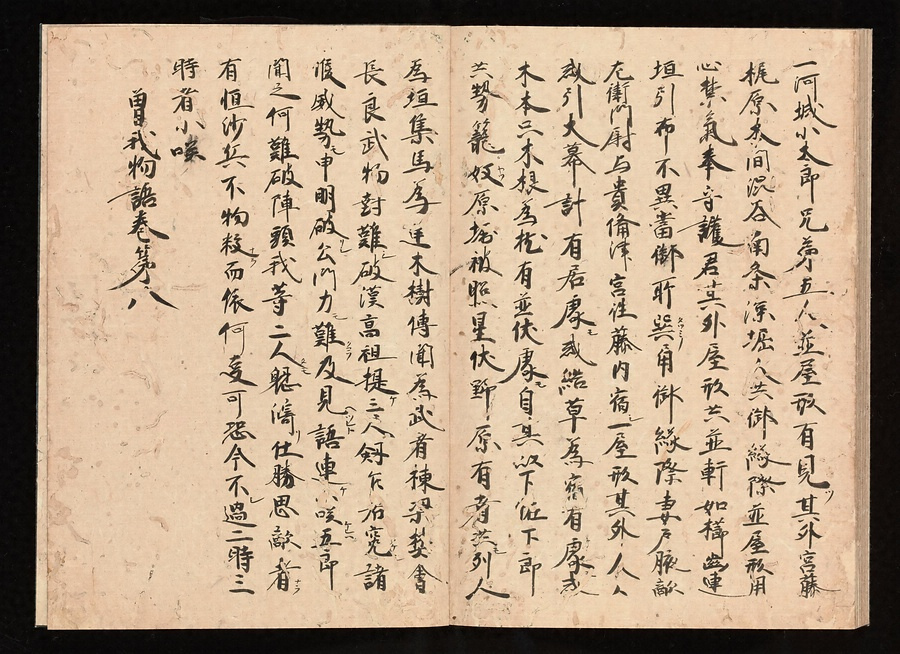 一河城小太郎兄弟五人並屋形有見其外宮藤
梶原太間混合南条深堀人共御縁際並屋形用
心禁氣奉守護君其外屋形共並軒如櫛幽連
垣引布不異當御所巽角御縁際妻戸腋敵
左衛門尉与貴備津宮往藤内宿一屋形其外人々
或引大幕計有居處或結草為宿有處或
木本只木根為枕有並伏處自其以下従下郎
共勢籠奴原拗被照星伏野原有者共列人
為垣集馬為逆木樹傳聞為武者棟梁樊會
長良武物封難破漢高祖提三人剱斤右究諸
張威勢申明破公門力難及見語連咲五郎
聞之何難破陣頭我等二人懸濤仕勝思敵者
有恒沙共不物数而依何妾可恐今不過二時三
時者小咲
曽我物語巻第八